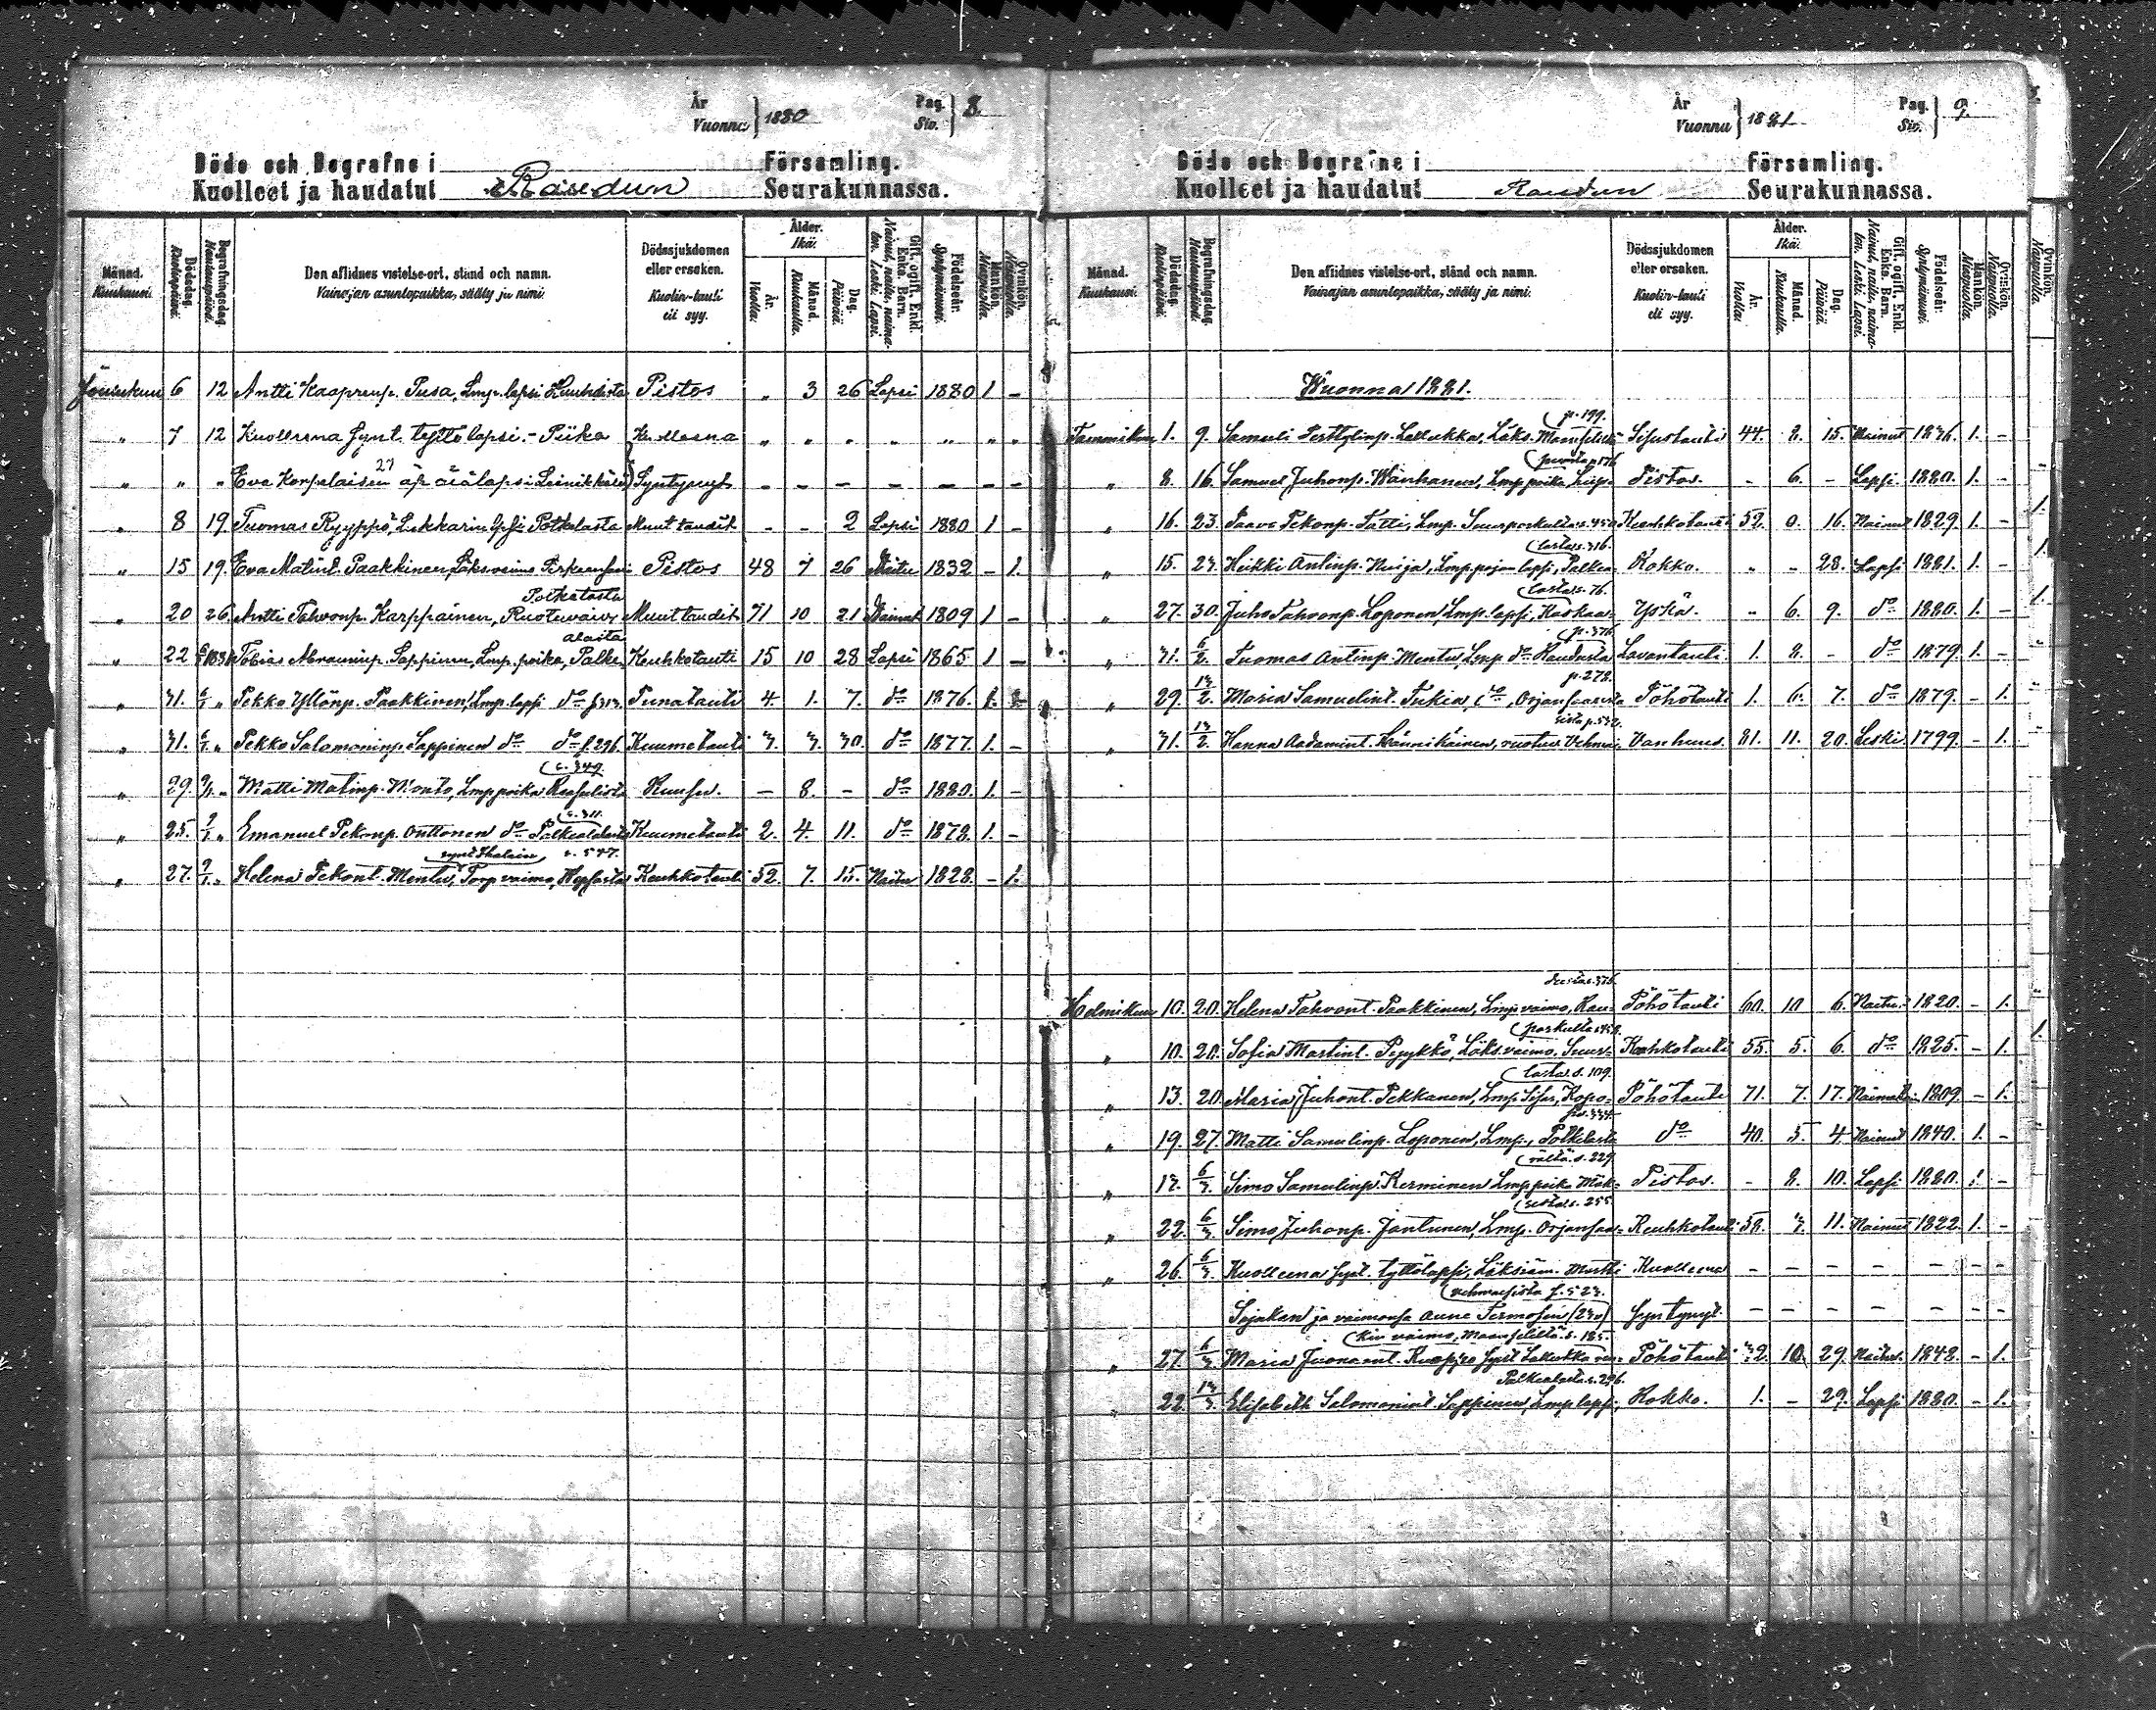 År
Vuonna } 1880
Pag.
Siv. } 8.
Döde och Begrafne i Församling.
Kuolleet ja haudatut Raudun Seurakunnassa.
Månad. Kuukausi.
Dödsdag. Kuolinpäivä.
Begrafningsdag. Hautauspäivä.
Den aflidnes vistelse-ort, stånd och namn.
Vainajan asuntopaikka, sääty ja nimi.
Dödssjukdomen eller orsaken.
Kuolin-tauti eli syy.
Ålder. Ikä.
År. Vuotta.
Månad. Kuukautta.
Dag. Päivää.
Gift, ogift, Enkl. Enka. Barn.
Nainut, naitu, naimaton. Leski. Lapsi.
Födelseår. Syntymävuosi.
Mankön. Miespuolia.
Qvinkön. Naispuolia.
Jouлukuu 6 12 Antti Kaaprenp. Pusa, Lmp. lapsi Pistos „ 3 26 Lapsi 1880 1 –
„ 7 12 Kuolleena synt. tyttölapsi. – Piika Kuolleena „ „ „ „ „ „ „
„ „ „ Eva Korpelaisen 27 äp. Syntynyt – – – – – – –
„ 8 19. Tuomas Ryyppö, Potkelasta Muut taudit – – 2 Lapsi 1880 1 –
„ 15 19. Eva Matint. Paakkinen, Läks. vaimo Pistos 48 7 26 Naitu 1832 – 1.
Potkelasta
„ 20 26. Antti Tahvonp. Karppainen, Ruotuvaiv. Muut taudit 71 10 21 Nainut 1809 1 –
alasta
„ 22 Tobias Abrahamp. Lappinen, Lmp. poika, Palke Keuhkotauti 15 10 28 Lapsi 1865 1 –
„ 31. Pekko Yllönp. Paakkinen, Lmp. lapsi do Punatauti 4. 1. 7. do 1876. 1. –
„ 31. Pekko Salomoninp. Lappinen do do s. 296. Kuumetauti 3. 3. 30. do 1877. 1. –
s. 349.
„ 29. Matti Matinp. Monto, Lmp poika Ruusu. – 8. – do 1880. 1. –
s. 311.
„ 25. Emanuel Pekonp. Onttonen do Palkealalasta Kuumetauti 2. 4. 11. do 1878. 1. –
s. 547.
„ 27. Helena Pekont. Mentu, Torp vaimo, Keuhkotauti 52. 7. 15. Naitu 1828. – 1.
År
Vuonna } 1881
Pag.
Siv. } 9.
Döde och Begrafne i Församling.
Kuolleet ja haudatut Raudun Seurakunnassa.
Månad. Kuukausi.
Dödsdag. Kuolinpäivä.
Begrafningsdag. Hautauspäivä.
Den aflidnes vistelse-ort, stånd och namn.
Vainajan asuntopaikka, sääty ja nimi.
Dödssjukdomen eller orsaken.
Kuolin-tauti eli syy.
Ålder. Ikä.
År. Vuotta.
Månad. Kuukautta.
Dag. Päivää.
Gift, ogift, Enkl. Enka. Barn.
Nainut, naitu, naimaton. Leski. Lapsi.
Födelseår. Syntymävuosi.
Mankön. Miespuolia.
Qvinkön. Naispuolia.
Qvinkön. Naispuolia.
Wuonna 1881.
p. 199.
Tammikuu 1. 9. Samuli Perttylinp. Lallukka, Läks. Maanselältä Sisustauti 44. 8. 15. Nainut 1836. 1. –
„ 8. 16. Samuel Juhonp. Wanhanen, Lmp poika Pistos. – 6. – Lapsi 1880. 1. –
„ 16. 23. Paavo Pekonp. Tatti, Lmp. Suurporkulta s. 450 Keuhkotauti 52. 0. 16. Nainut 1829. 1. –
lasta s. 316.
„ 15. 23. Heikki Antinp. Muija, Lmp pojan lapsi, Palkea- Rokko. „ „ 28. Lapsi 1881. 1. –
lasta s. 76.
„ 27. 30. Juho Tahvonp. Loponen, Lmp. lapsi, Haskaa- Yskä. „ 6. 9. do 1880. 1. –
p. 376
„ 31. 6/2. Tuomas Antinp. Mentu, Lmp do Raudusta Lavantauti. 1. 8. – do 1879. 1. –
p. 278.
„ 29. 13/2. Maria Samuelint. Tukia, do, Orjansaaresta Pöhötauti 1. 6. 7. do 1879. – 1.
sista p. 532.
„ 31. 13/2. Hanna Aadamint. Hännikäinen, ruotuv. Vehmai- Vanhuus. 81. 11. 20. Leski 1799. – 1.
dusta s. 375.
Helmikuu 10. 20. Helena Tahvont. Paakkinen, Lmp vaimo, Rau- Pöhötauti 60. 10 6. Naitu. 1820. – 1.
porkulta s. 458.
„ 10. 20. Sofia Martint. Pyykkö, Läks. vaimo, Suur- Keuhkotauti 55. 5. 6. do 1825. – 1.
lasta s. 109.
„ 13. 20. Maria Juhont. Pekkanen, Lmp Sisar, Kopo- Pöhötauti 71. 7. 17. Naimaton 1809. – 1.
„ 19. 27. Matti Samulinp. Loponen, Lmp., Potkelasta do 40. 5. 4 Nainut 1840. 1. –
rältä s. 229
„ 17. 6/3. Simo Samulinp. Kerminen Lmp poika Mäk- Pistos. – 8. 10. Lapsi 1880. 1. –
resta s. 255
„ 22. 6/3. Simo Juhonp. Jantunen, Lmp. Orjansaa- Keuhkotauti 58. 3. 11. Nainut 1822. 1. –
„ 26. 6/3. Kuolleena synt. tyttölapsi, Läksiäm. Martti Kuolleena – – – – – – –
Vehmaisista s. 523.
ja vaimonsa Anna Termosen (23v) Syntynyt. – – – – – – –
vaimo, Maanselältä s. 185.
„ 27. 6/3. Maria Juonamt. Kuoppa synt Lallukka Pöhötauti 32. 10. 29. Naitu. 1848. – 1.
Palkealasta s. 296.
„ 22. 13/3. Elisabeth Salomonint. Lappinen, Lmp lapsi, Rokko. 1. – 29. Lapsi 1880. – 1.